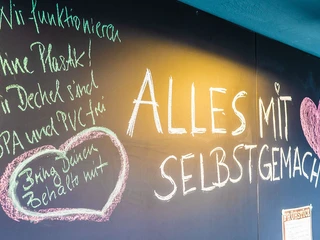 Wir funktionieren
ohne Plastik!
Deckel sind
BPA und PVC frei
Bring Deinen
Behälter mit
ALLES MIT
SELBSTGEMACH